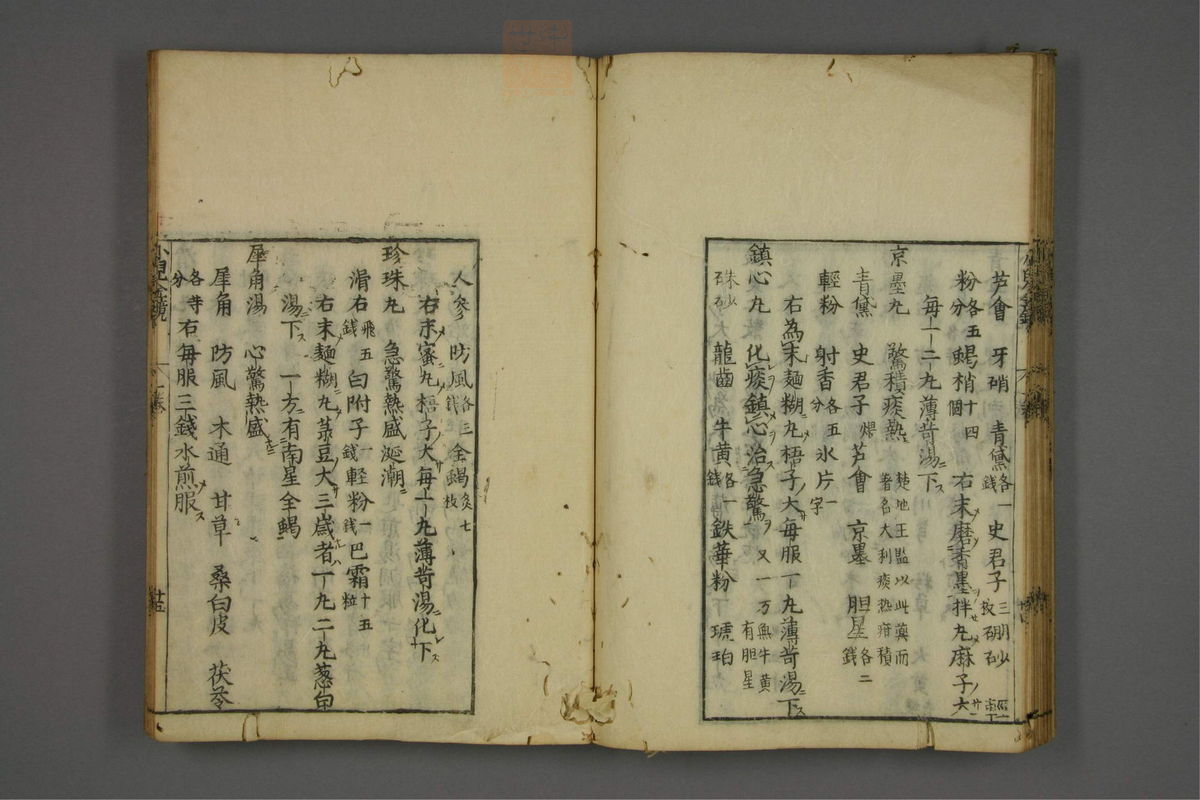 芦會　牙硝　青黛各一錢　史君子三枚　硼砂　輕
粉各五分　蝎梢十四個　右末磨香墨拌丸麻子大ノサ
每一二丸薄苛湯ニ下ス
京墨丸　驚積痰熱　楚地王監以此藥而著名大利痰熱疳積
青黛　史君子煨　芦會　京墨　胆星各二錢
輕粉　射香各五分　氷片一字
右為末麵糊丸梧子大每服一丸薄苛湯ニ下ス
鎮心丸　化痰鎮心治急驚　又一方無牛黃有胆星
硃砂　龍齒　牛黃各一錢　鉄華粉　琥珀
人參　防風各三錢　金蝎灸七枚
右末蜜丸梧子大每一丸薄苛湯化下
珍珠丸　急驚熱盛涎潮
滑石飛五錢　白附子一錢　輕粉一錢　巴霜十五粒
右末麵糊丸菉豆大三歲者一丸二丸葱白
湯下ス　一方ニ有南星全蝎
犀角湯　心驚熱盛
犀角　防風　木通　甘草　桑白皮　茯苓
各等分右每服三錢水煎服ス